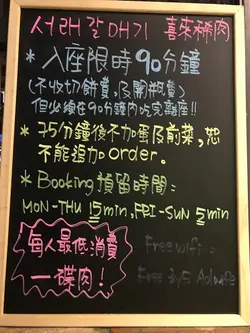 서래갈매기 喜來稀肉
* 入座限時90分鐘
(不收切餅費,及開瓶費)
但必須在90分鐘內吃完離座!!
* 75分鐘後不加蛋及前菜, 恕
不能追加order。
* Booking預留時間:
MON-THU 15min, FRI-SUN 5min
每人最低消費
一碟肉!
Free wifi:
Free